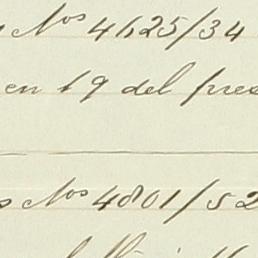 Nos 4625/34
en 19 del pres
s Nos 4801/52